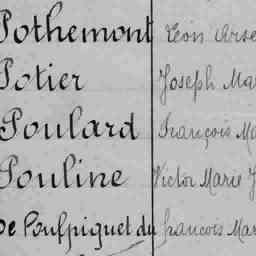 Pothemont Léon Arsè
Potier Joseph Mar
Poulard François Ma
Pouline Victor Marie J
De Poulpiquet du francois Mar